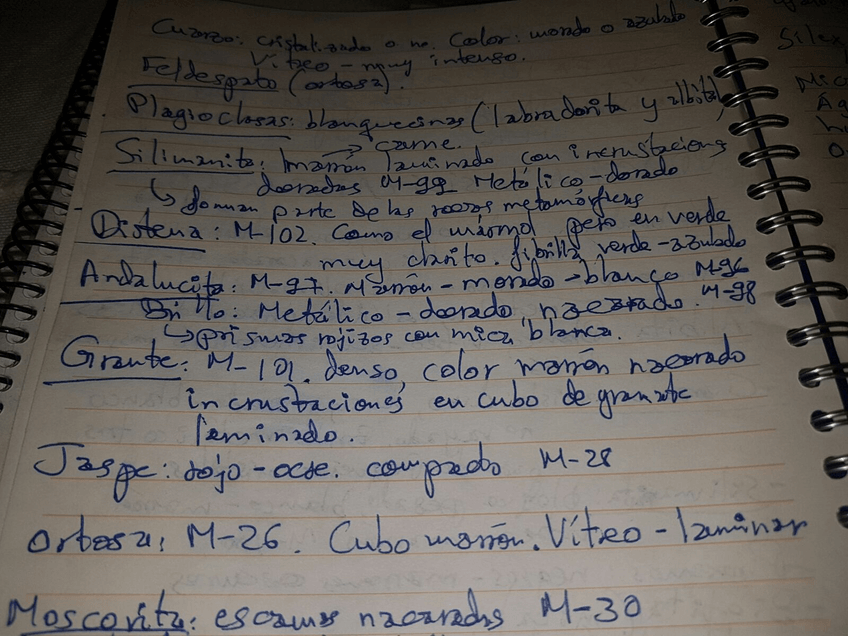 Cuarzo: cristalizado o no. Color: morado o azulado
Vítreo - muy intenso.
Feldespato (ortosa).
Plagioclasas: blanquecinas (labradorita y albita)
→ carne.
Silimanita: marrón laminado con incrustaciones
doradas M-99 Metálico-dorado
↳ forman parte de las rocas metamórficas
Distena: M-102. Como el mármol pero en verde
muy clarito. fibrilla verde-azulado
Andalucita: M-97. Marrón-morado → blanco M-96
Brillo: Metálico-dorado, nacarado. M-98
↳ prismas rojizos con mica blanca.
Granate: M-101. denso, color marrón nacarado
incrustaciones en cubo de granate
laminado.
Jaspe: rojo-ocre. compacto M-28
Ortosa: M-26. Cubo marrón. Vítreo-laminar
Moscovita: escamas nacaradas M-30
Silex